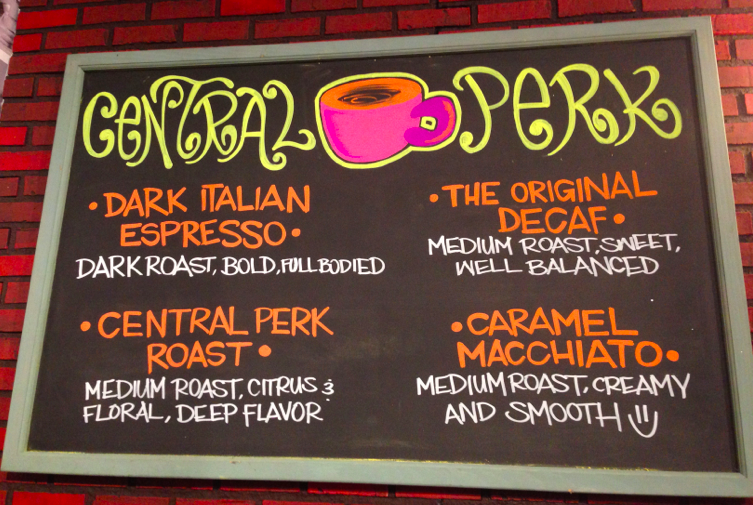 CENTRAL PERK
• DARK ITALIAN
ESPRESSO •
DARK ROAST, BOLD, FULL BODIED
• THE ORIGINAL
DECAF •
MEDIUM ROAST, SWEET,
WELL BALANCED
• CENTRAL PERK
ROAST •
MEDIUM ROAST, CITRUS &
FLORAL, DEEP FLAVOR
• CARAMEL
MACCHIATO •
MEDIUM ROAST, CREAMY
AND SMOOTH